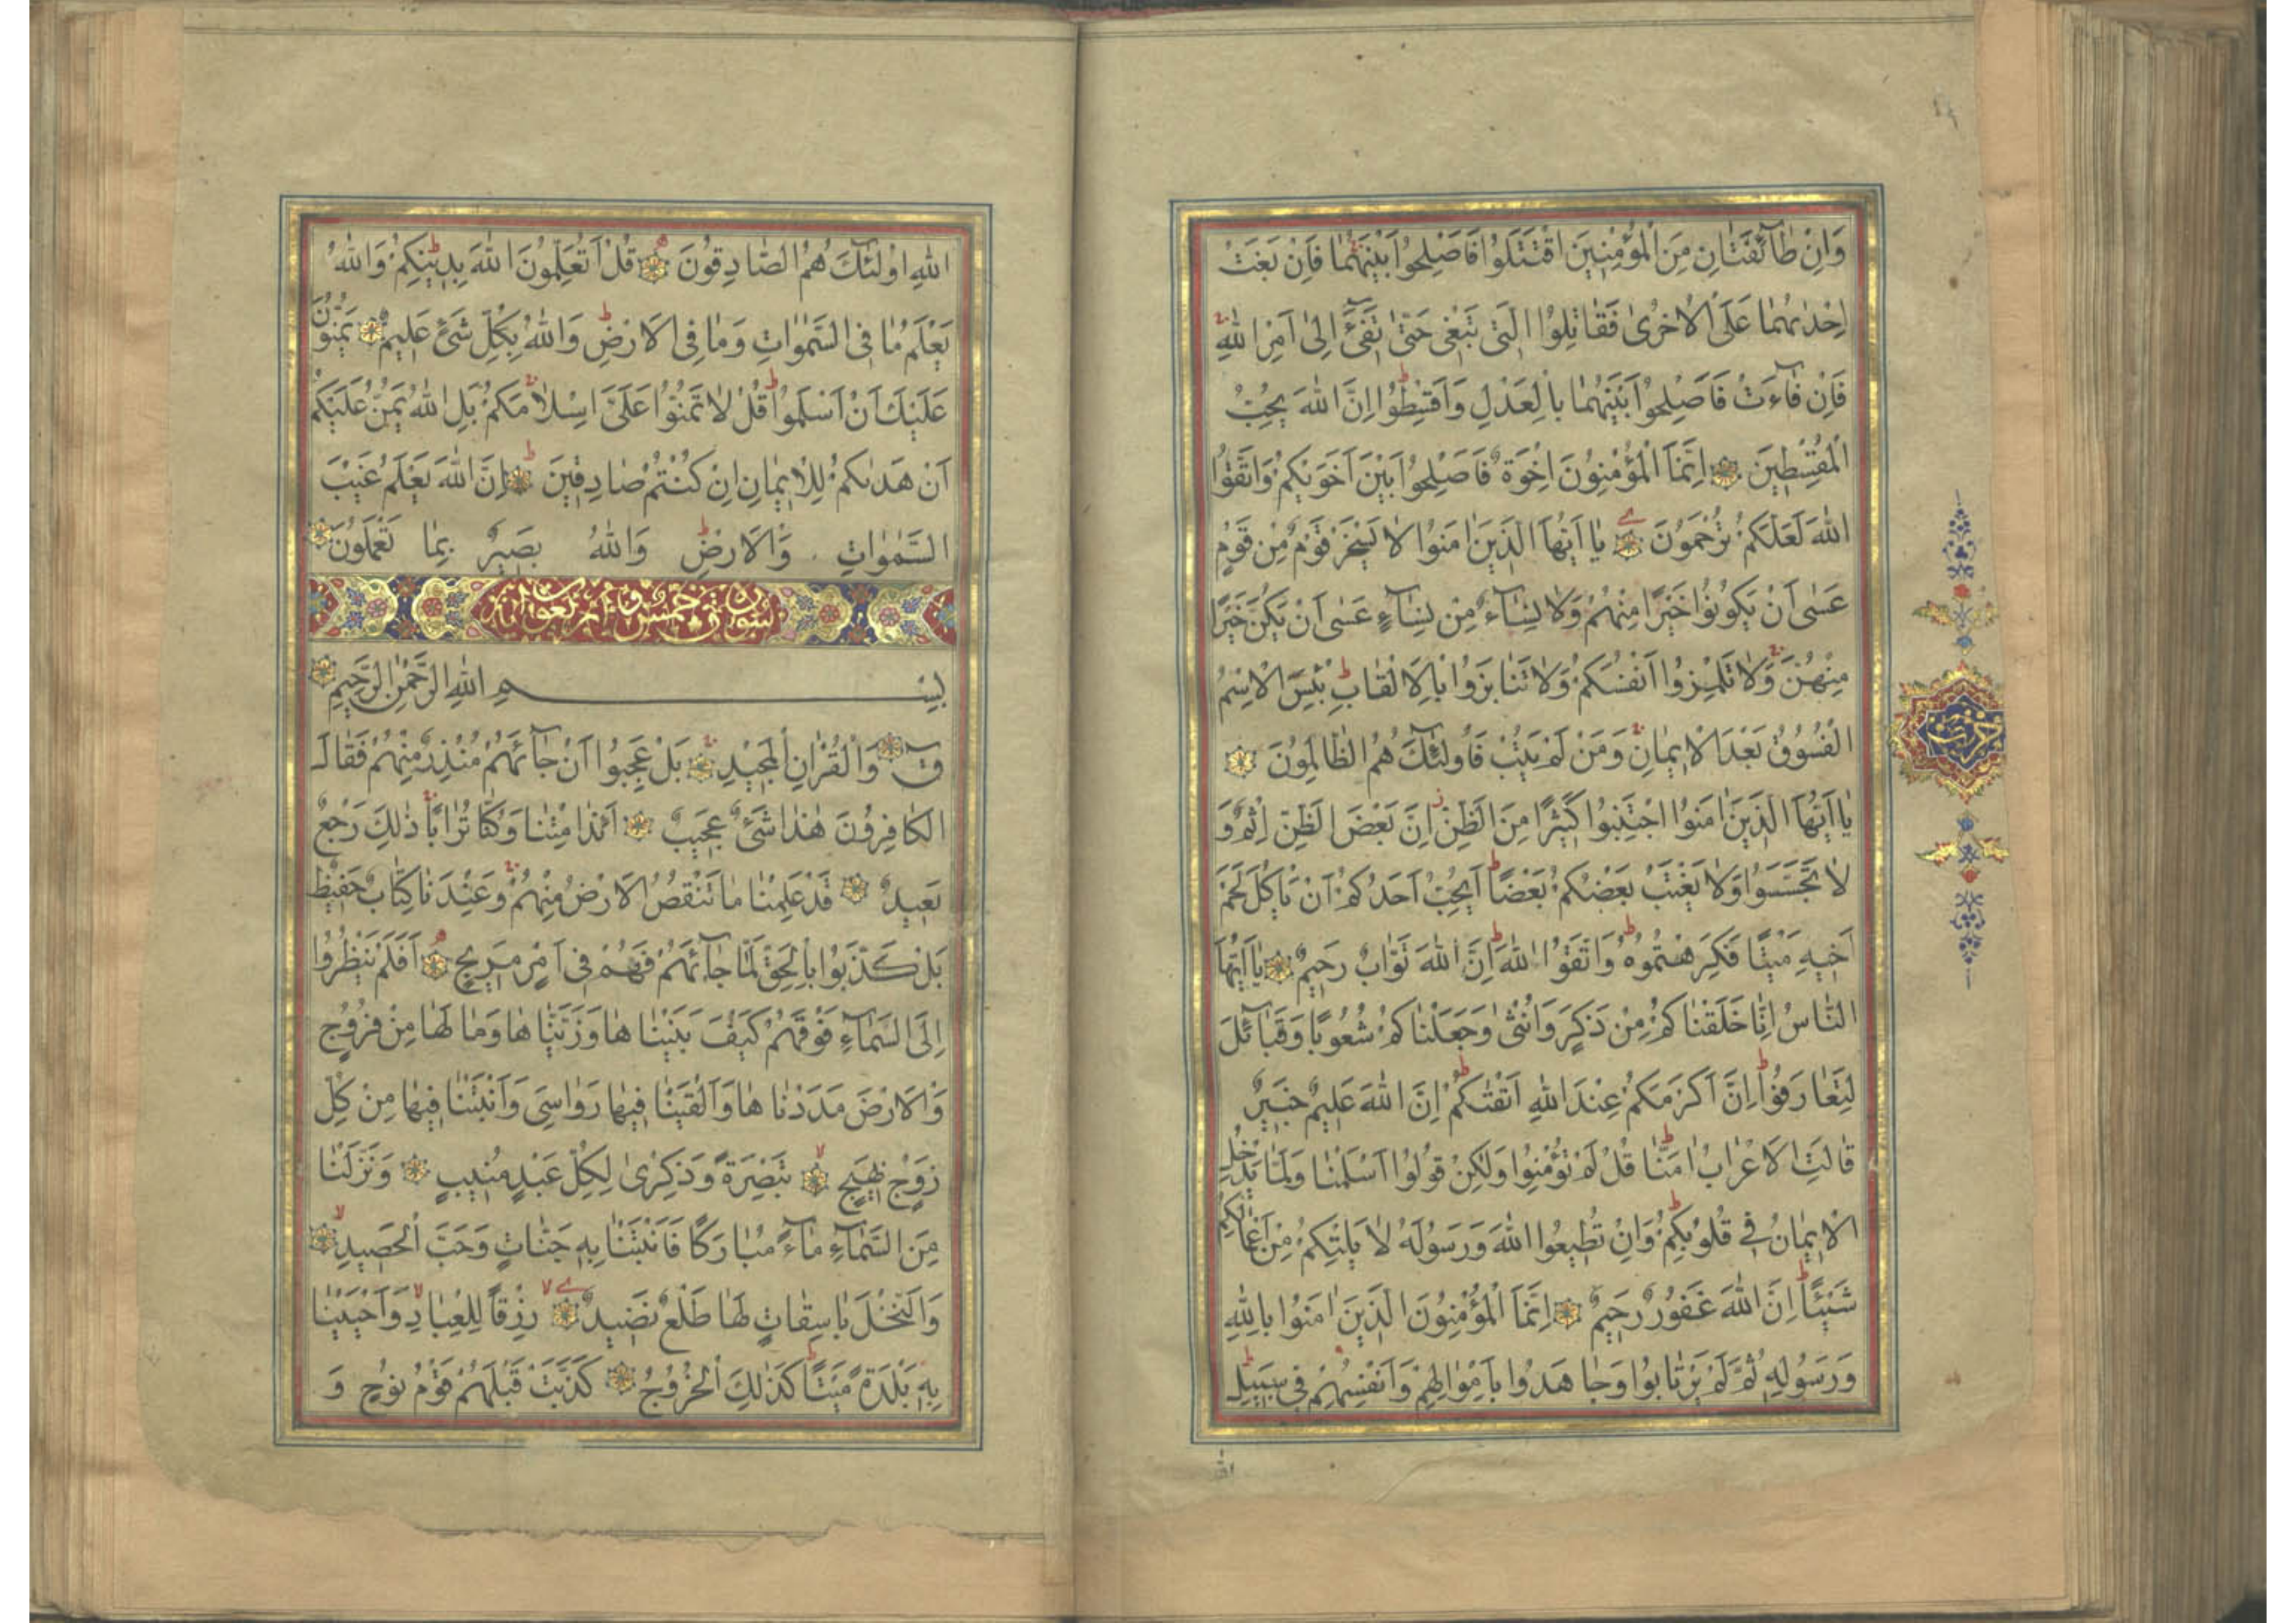 وَاِنْ طَآئِفَتَانِ مِنَ الْمُؤْمِنِينَ اقْتَتَلُوا فَاَصْلِحُوا بَيْنَهُمَا فَاِنْ بَغَتْ
اِحْدٰىهُمَا عَلَى الْاُخْرٰى فَقَاتِلُوا الَّتِى تَبْغِى حَتّٰى تَفِىٓءَ اِلٰى اَمْرِ اللّٰهِ
فَاِنْ فَآءَتْ فَاَصْلِحُوا بَيْنَهُمَا بِالْعَدْلِ وَاَقْسِطُوا اِنَّ اللّٰهَ يُحِبُّ
الْمُقْسِطِينَ اِنَّمَا الْمُؤْمِنُونَ اِخْوَةٌ فَاَصْلِحُوا بَيْنَ اَخَوَيْكُمْ وَاتَّقُوا
اللّٰهَ لَعَلَّكُمْ تُرْحَمُونَ يَا اَيُّهَا الَّذِينَ اٰمَنُوا لَا يَسْخَرْ قَوْمٌ مِنْ قَوْمٍ
عَسٰى اَنْ يَكُونُوا خَيْرًا مِنْهُمْ وَلَا نِسَآءٌ مِنْ نِسَآءٍ عَسٰى اَنْ يَكُنَّ خَيْرًا
مِنْهُنَّ وَلَا تَلْمِزُوا اَنْفُسَكُمْ وَلَا تَنَابَزُوا بِالْاَلْقَابِ بِئْسَ الِاسْمُ
الْفُسُوقُ بَعْدَ الْاِيمَانِ وَمَنْ لَمْ يَتُبْ فَاُولٰٓئِكَ هُمُ الظَّالِمُونَ
يَا اَيُّهَا الَّذِينَ اٰمَنُوا اجْتَنِبُوا كَثِيرًا مِنَ الظَّنِّ اِنَّ بَعْضَ الظَّنِّ اِثْمٌ وَ
لَا تَجَسَّسُوا وَلَا يَغْتَبْ بَعْضُكُمْ بَعْضًا اَيُحِبُّ اَحَدُكُمْ اَنْ يَاْكُلَ لَحْمَ
اَخِيهِ مَيْتًا فَكَرِهْتُمُوهُ وَاتَّقُوا اللّٰهَ اِنَّ اللّٰهَ تَوَّابٌ رَحِيمٌ يَا اَيُّهَا
النَّاسُ اِنَّا خَلَقْنَاكُمْ مِنْ ذَكَرٍ وَاُنْثٰى وَجَعَلْنَاكُمْ شُعُوبًا وَقَبَآئِلَ
لِتَعَارَفُوا اِنَّ اَكْرَمَكُمْ عِنْدَ اللّٰهِ اَتْقٰىكُمْ اِنَّ اللّٰهَ عَلِيمٌ خَبِيرٌ
قَالَتِ الْاَعْرَابُ اٰمَنَّا قُلْ لَمْ تُؤْمِنُوا وَلٰكِنْ قُولُوا اَسْلَمْنَا وَلَمَّا يَدْخُلِ
الْاِيمَانُ فِى قُلُوبِكُمْ وَاِنْ تُطِيعُوا اللّٰهَ وَرَسُولَهُ لَا يَلِتْكُمْ مِنْ اَعْمَالِكُمْ
شَيْئًا اِنَّ اللّٰهَ غَفُورٌ رَحِيمٌ اِنَّمَا الْمُؤْمِنُونَ الَّذِينَ اٰمَنُوا بِاللّٰهِ
وَرَسُولِهِ ثُمَّ لَمْ يَرْتَابُوا وَجَاهَدُوا بِاَمْوَالِهِمْ وَاَنْفُسِهِمْ فِى سَبِيلِ
اللّٰه
حزب
اللّٰهِ اُولٰٓئِكَ هُمُ الصَّادِقُونَ قُلْ اَتُعَلِّمُونَ اللّٰهَ بِدِينِكُمْ وَاللّٰهُ
يَعْلَمُ مَا فِى السَّمٰوَاتِ وَمَا فِى الْاَرْضِ وَاللّٰهُ بِكُلِّ شَىْءٍ عَلِيمٌ يَمُنُّونَ
عَلَيْكَ اَنْ اَسْلَمُوا قُلْ لَا تَمُنُّوا عَلَىَّ اِسْلَامَكُمْ بَلِ اللّٰهُ يَمُنُّ عَلَيْكُمْ
اَنْ هَدٰىكُمْ لِلْاِيمَانِ اِنْ كُنْتُمْ صَادِقِينَ اِنَّ اللّٰهَ يَعْلَمُ غَيْبَ
السَّمٰوَاتِ وَالْاَرْضِ وَاللّٰهُ بَصِيرٌ بِمَا تَعْمَلُونَ
سورة ق خمس و اربعون اية
بِسْمِ اللّٰهِ الرَّحْمٰنِ الرَّحِيمِ
قٓ وَالْقُرْاٰنِ الْمَجِيدِ بَلْ عَجِبُوا اَنْ جَآئَهُمْ مُنْذِرٌ مِنْهُمْ فَقَالَ
الْكَافِرُونَ هٰذَا شَىْءٌ عَجِيبٌ اَئِذَا مِتْنَا وَكُنَّا تُرَابًا ذٰلِكَ رَجْعٌ
بَعِيدٌ قَدْ عَلِمْنَا مَا تَنْقُصُ الْاَرْضُ مِنْهُمْ وَعِنْدَنَا كِتَابٌ حَفِيظٌ
بَلْ كَذَّبُوا بِالْحَقِّ لَمَّا جَآئَهُمْ فَهُمْ فِى اَمْرٍ مَرِيجٍ اَفَلَمْ يَنْظُرُوا
اِلَى السَّمَآءِ فَوْقَهُمْ كَيْفَ بَنَيْنَاهَا وَزَيَّنَّاهَا وَمَا لَهَا مِنْ فُرُوجٍ
وَالْاَرْضَ مَدَدْنَاهَا وَاَلْقَيْنَا فِيهَا رَوَاسِىَ وَاَنْبَتْنَا فِيهَا مِنْ كُلِّ
زَوْجٍ بَهِيجٍ تَبْصِرَةً وَذِكْرٰى لِكُلِّ عَبْدٍ مُنِيبٍ وَنَزَّلْنَا
مِنَ السَّمَآءِ مَآءً مُبَارَكًا فَاَنْبَتْنَا بِهِ جَنَّاتٍ وَحَبَّ الْحَصِيدِ
وَالنَّخْلَ بَاسِقَاتٍ لَهَا طَلْعٌ نَضِيدٌ رِزْقًا لِلْعِبَادِ وَاَحْيَيْنَا
بِهِ بَلْدَةً مَيْتًا كَذٰلِكَ الْخُرُوجُ كَذَّبَتْ قَبْلَهُمْ قَوْمُ نُوحٍ وَ